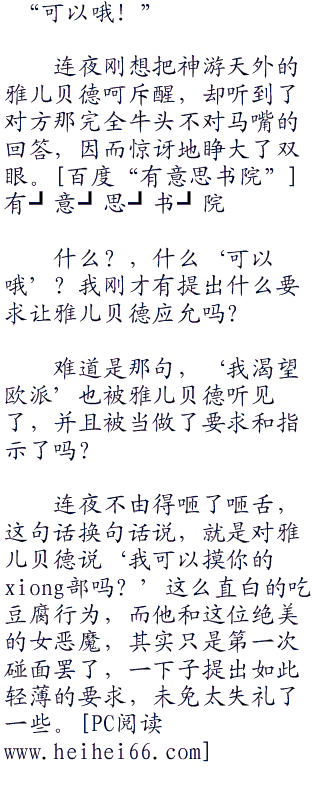 “可以哦！”
连夜刚想把神游天外的
雅儿贝德呵斥醒，却听到了
对方那完全牛头不对马嘴的
回答，因而惊讶地睁大了双
眼。[百度“有意思书院”]
有┛意┛思┛书┛院
什么？，什么‘可以
哦’？我刚才有提出什么要
求让雅儿贝德应允吗？
难道是那句，‘我渴望
欧派’也被雅儿贝德听见
了，并且被当做了要求和指
示了吗？
连夜不由得咂了咂舌，
这句话换句话说，就是对雅
儿贝德说‘我可以摸你的
xiong部吗？’这么直白的吃
豆腐行为，而他和这位绝美
的女恶魔，其实只是第一次
碰面罢了，一下子提出如此
轻薄的要求，未免太失礼了
一些。[PC阅读
www.heihei66.com]